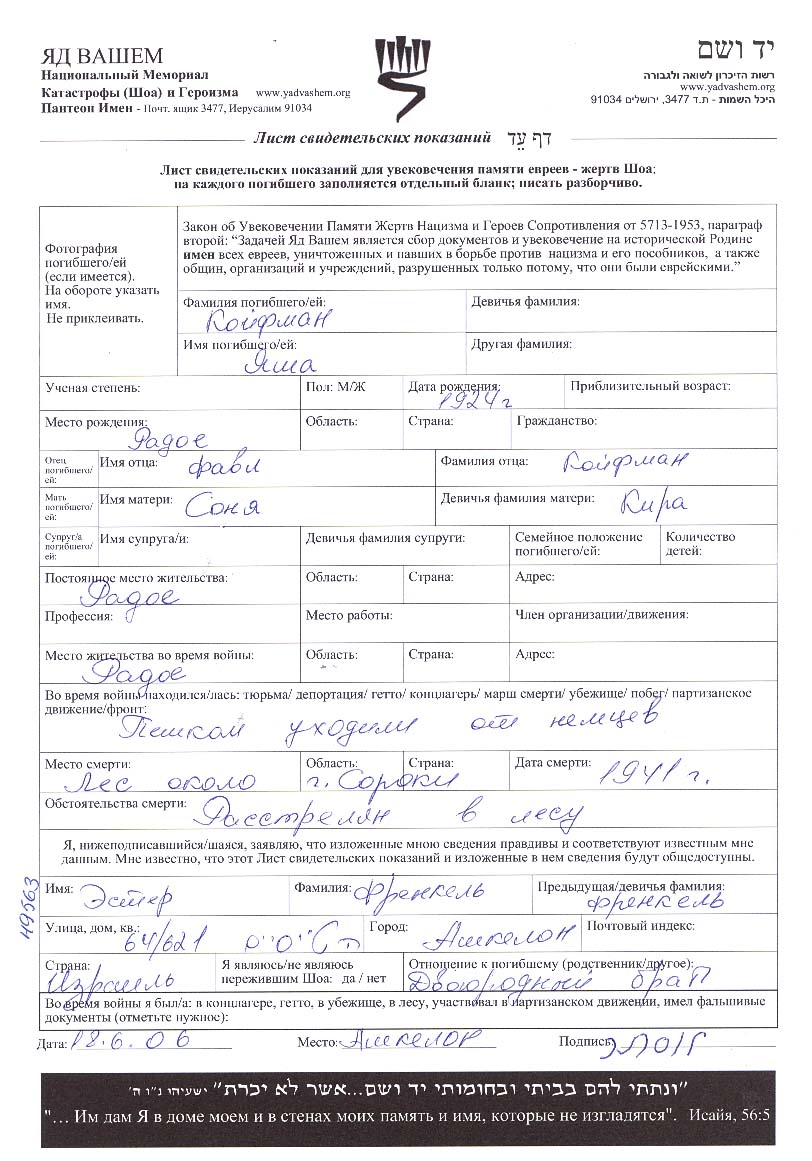 ЯД ВАШЕМ
Национальный Мемориал
Катастрофы (Шоа) и Героизма www.yadvashem.org
Пантеон Имен - Почт. ящик 3477, Иерусалим 91034
יד ושם
רשות הזיכרון לשואה ולגבורה
www.yadvashem.org
היכל השמות - ת.ד 3477, ירושלים 91034
Лист свидетельских показаний דף עֵד
Лист свидетельских показаний для увековечения памяти евреев - жертв Шоа;
на каждого погибшего заполняется отдельный бланк; писать разборчиво.
Фотография
погибшего/ей
(если имеется).
На обороте указать
имя.
Не приклеивать.
Закон об Увековечении Памяти Жертв Нацизма и Героев Сопротивления от 5713-1953, параграф
второй: “Задачей Яд Вашем является сбор документов и увековечение на исторической Родине
имен всех евреев, уничтоженных и павших в борьбе против нацизма и его пособников, а также
общин, организаций и учреждений, разрушенных только потому, что они были еврейскими.”
Фамилия погибшего/ей: Койфман
Девичья фамилия:
Имя погибшего/ей: Яша
Другая фамилия:
Ученая степень:
Пол: М/Ж
Дата рождения: 1924 г
Приблизительный возраст:
Место рождения: Радое
Область:
Страна:
Гражданство:
Отец погибшего/ей:
Имя отца: Фавл
Фамилия отца: Койфман
Мать погибшего/ей:
Имя матери: Соня
Девичья фамилия матери: Кира
Супруг/а погибшего/ей:
Имя супруга/и:
Девичья фамилия супруги:
Семейное положение погибшего/ей:
Количество детей:
Постоянное место жительства: Радое
Область:
Страна:
Адрес:
Профессия:
Место работы:
Член организации/движения:
Место жительства во время войны: Радое
Область:
Страна:
Адрес:
Во время войны находился/лась: тюрьма/ депортация/ гетто/ концлагерь/ марш смерти/ убежище/ побег/ партизанское
движение/фронт:
Пешком уходили от немцев
Место смерти: Область: Страна: Дата смерти:
Лес около г. Сороки 1941 г.
Обстоятельства смерти: Расстрелян в лесу
Я, нижеподписавшийся/шаяся, заявляю, что изложенные мною сведения правдивы и соответствуют известным мне
данным. Мне известно, что этот Лист свидетельских показаний и изложенные в нем сведения будут общедоступны.
49563
Имя: Эстер
Фамилия: Френкель
Предыдущая/девичья фамилия: Френкель
Улица, дом, кв.: 64/621
Город: Ашкелон
Почтовый индекс:
Страна: Израиль
Я являюсь/не являюсь
пережившим Шоа: да / нет
Отношение к погибшему (родственник/другое):
Двоюродный брат
Во время войны я был/а: в концлагере, гетто, в убежище, в лесу, участвовал в партизанском движении, имел фальшивые
документы (отметьте нужное):
Дата: 18.6.06 Место: Ашкелон Подпись
"ונתתי להם בביתי ובחומותי יד ושם...אשר לא יכרת" ישעיהו נ"ו ה'
"... Им дам Я в доме моем и в стенах моих память и имя, которые не изгладятся". Исайя, 56:5